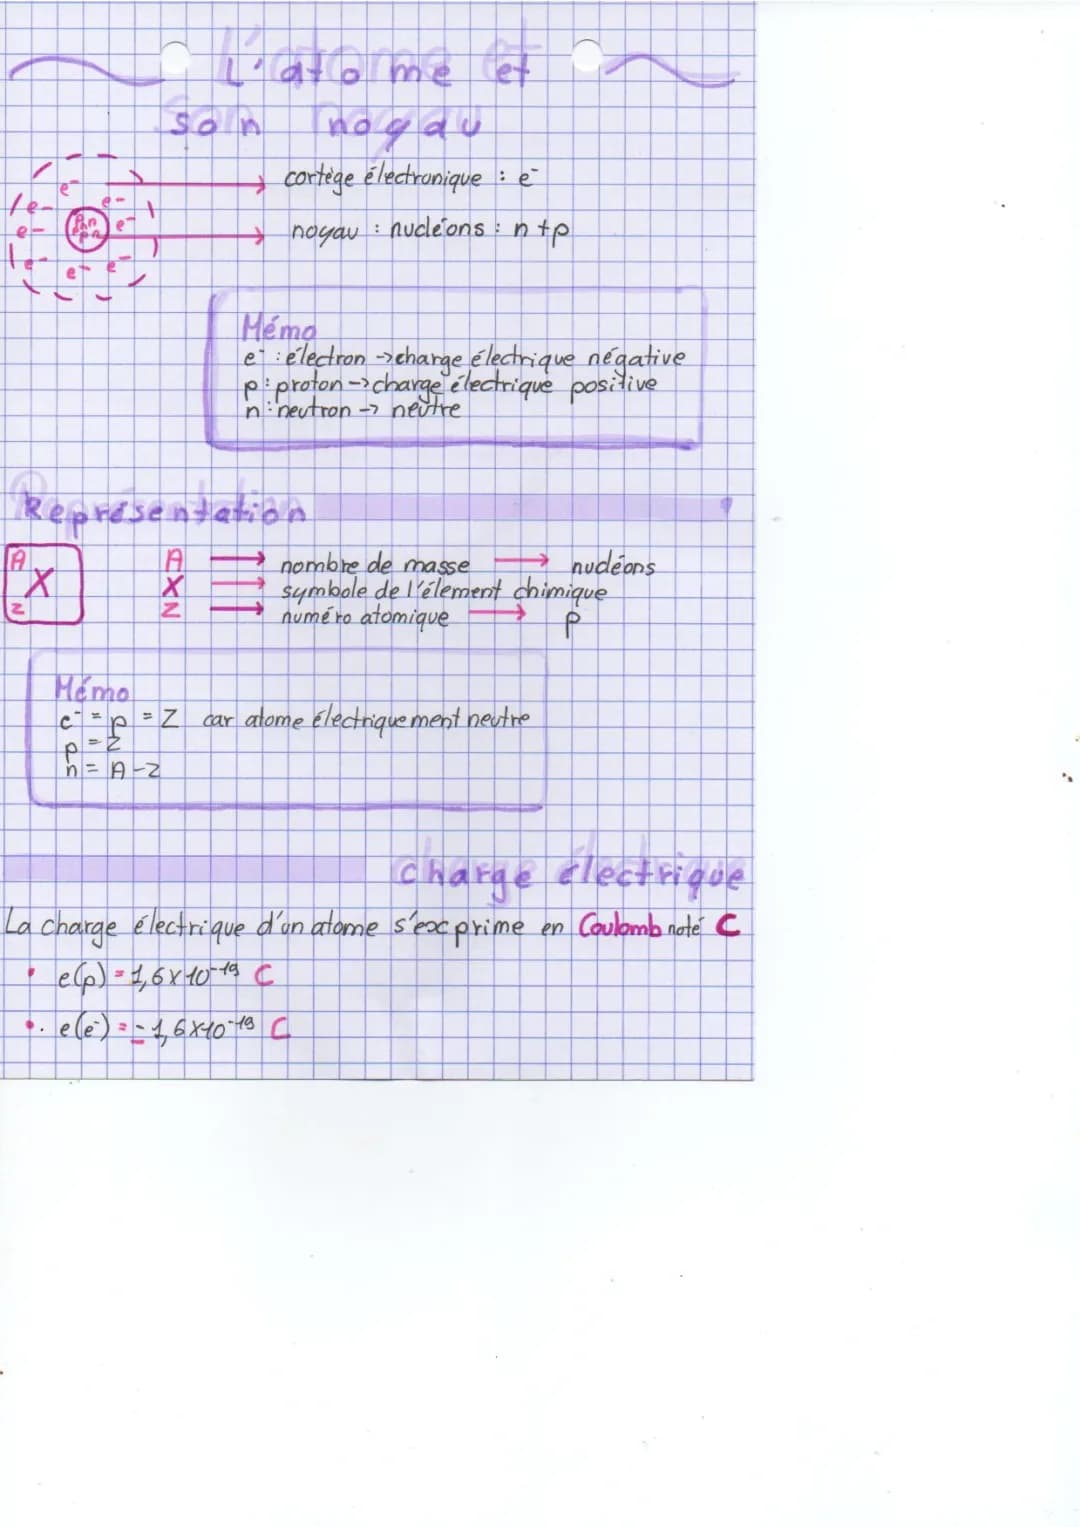 L'atome et
son noyau
cortège électronique : e⁻
noyau : nucléons : n+p
e⁻
e⁻
e⁻
e⁻
e⁻
e⁻
e⁻
e⁻
Mémo
e⁻ : électron -> charge électrique négative
p : proton -> charge électrique positive
n : neutron -> neutre
Représentation
A
X
Z
A → nombre de masse → nucléons
X → symbole de l'élement chimique
Z → numéro atomique → p
Mémo
e⁻ = p = Z car atome électriquement neutre
p = Z
n = A - Z
charge électrique
La charge électrique d'un atome s'exprime en Coulomb noté C
• e(p) = 1,6 × 10⁻¹⁹ C
• e(e⁻) = - 1,6 × 10⁻¹⁹ C